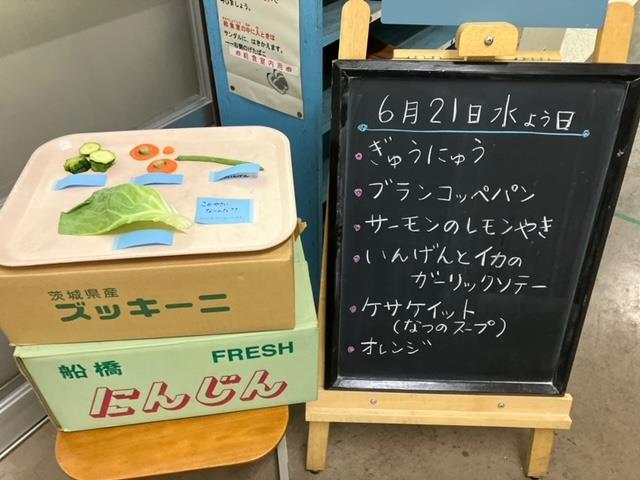 給食室の中に入るときは
サンダルに、はきかえます。
6月21日水よう日
ぎゅうにゅう
ブランコッペパン
サーモンのレモンやき
いんげんとイカの
ガーリックソテー
ケサケイット
(なつのスープ)
オレンジ
このやさい
なーんだ??
茨城県産
ズッキーニ
船橋
FRESH
にんじん